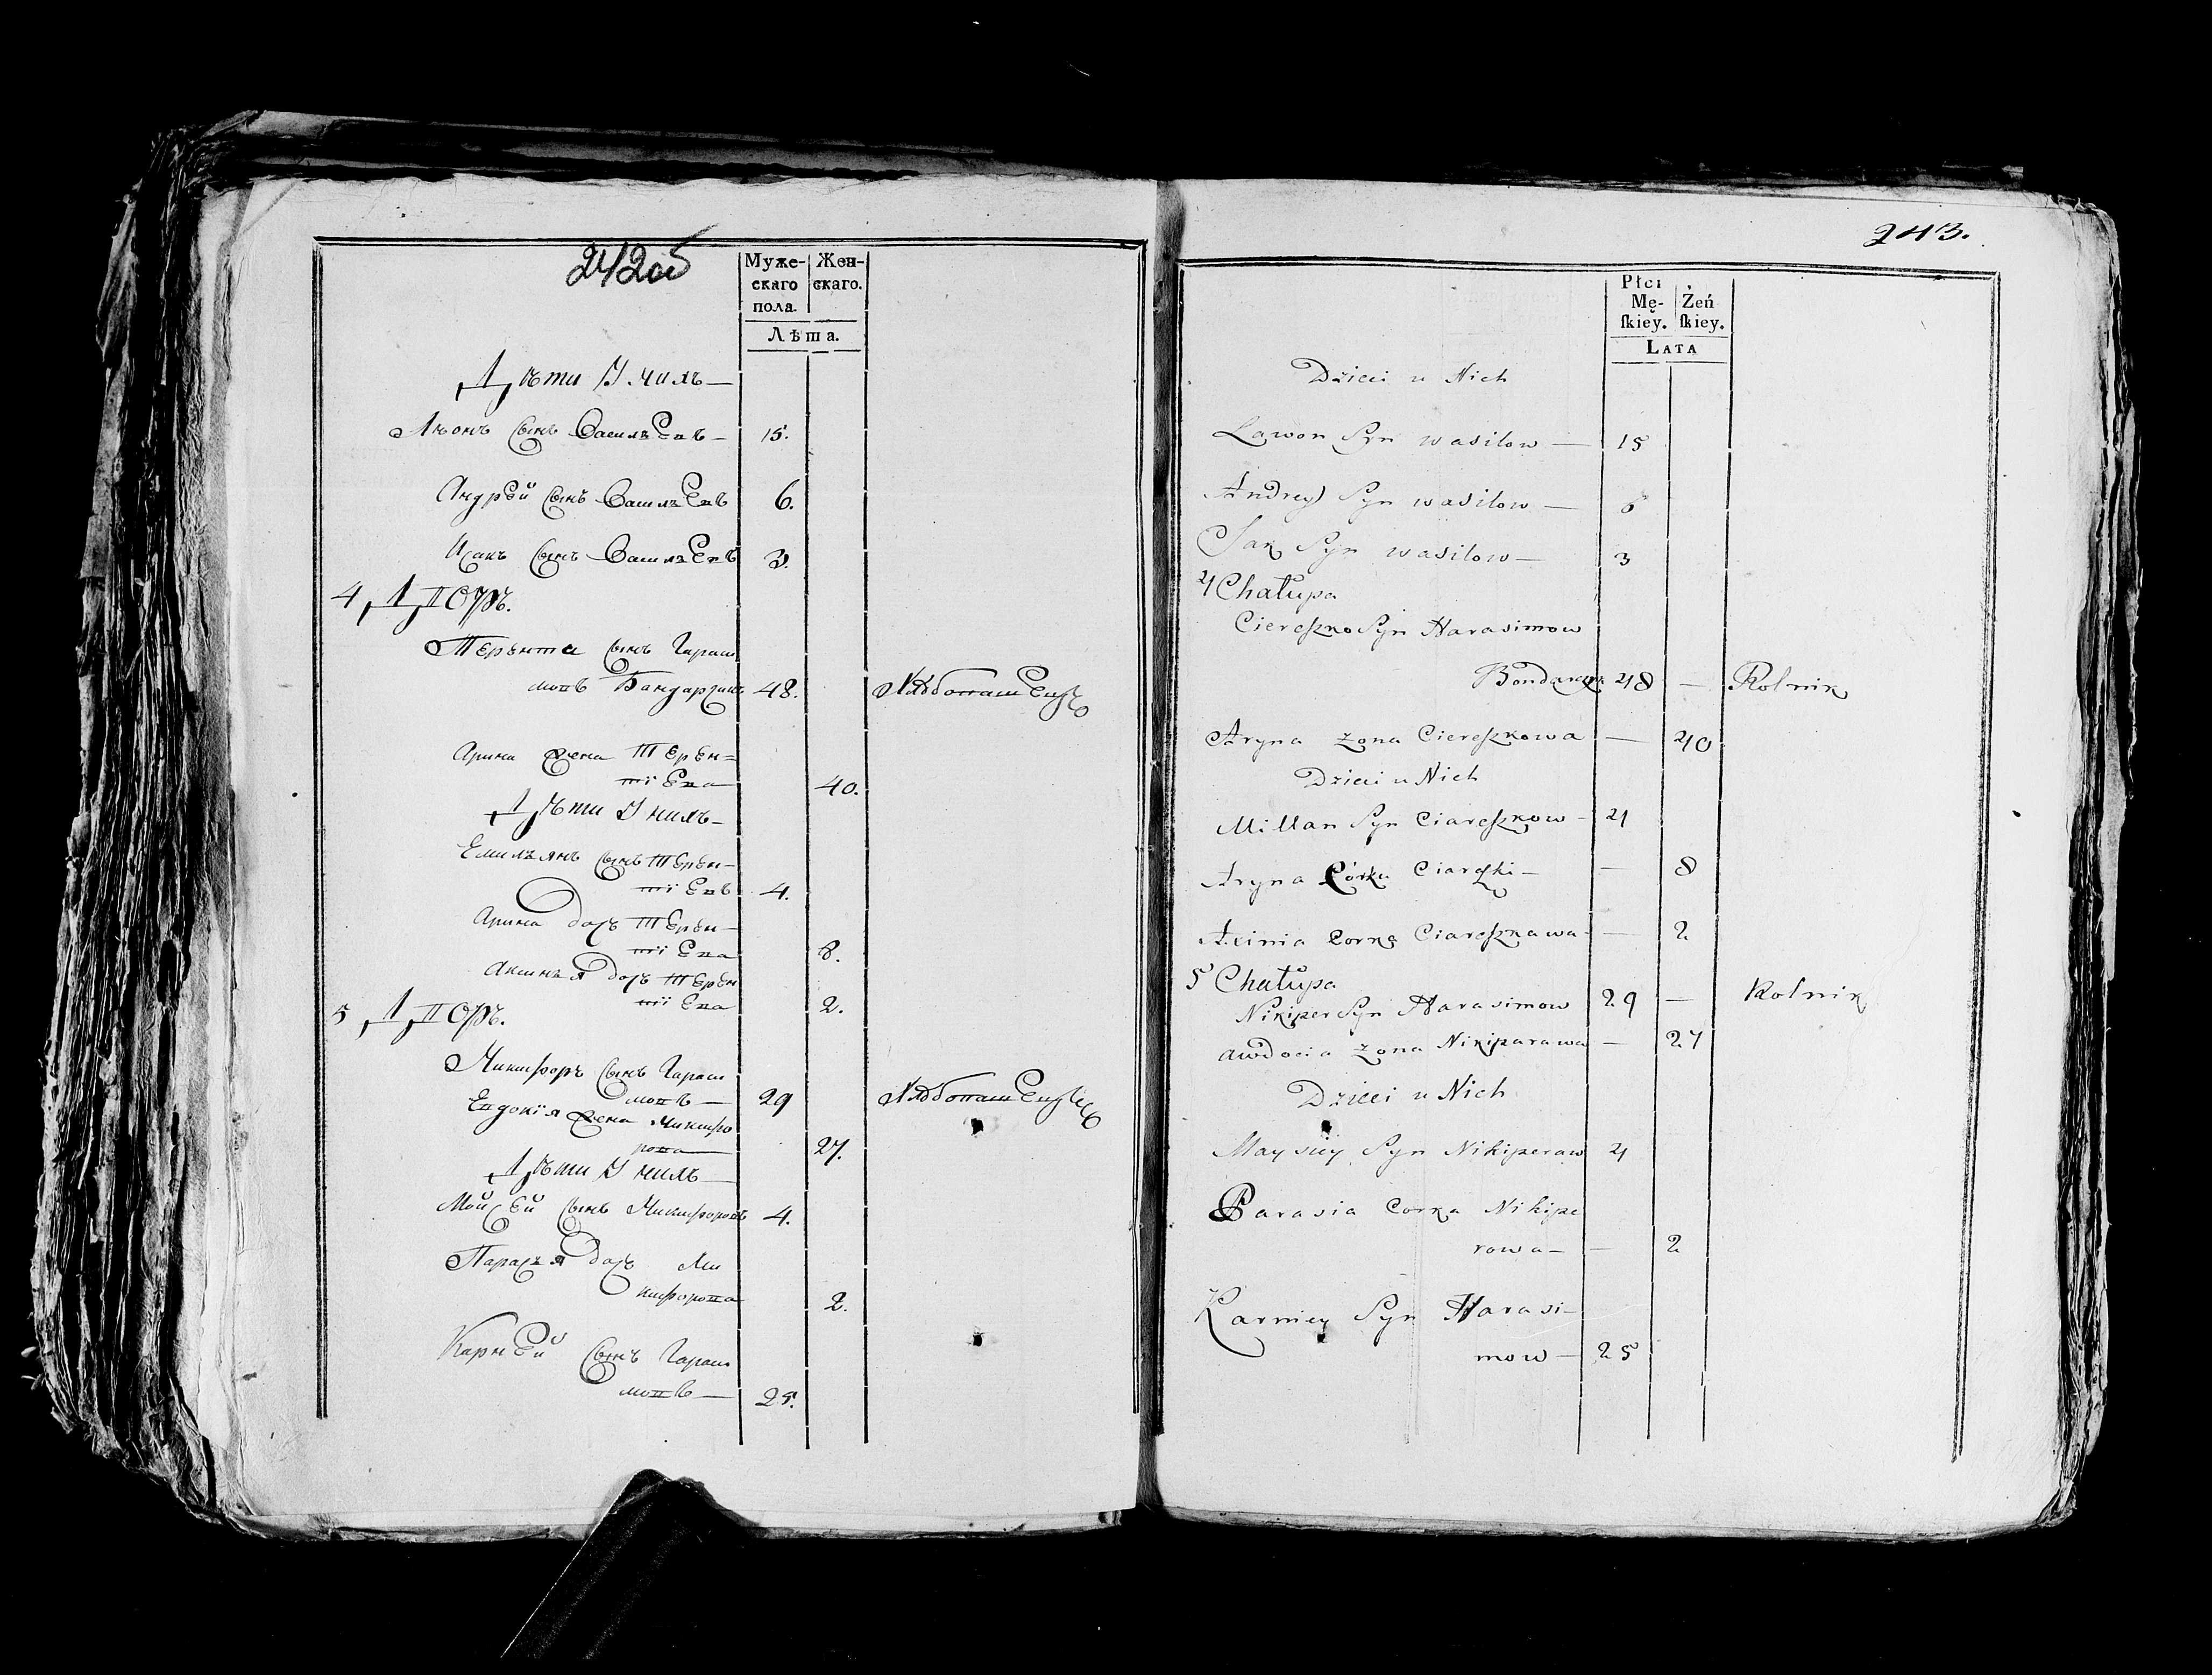 242об
Муже-
скаго
пола.
Жен-
скаго.
Лѣта.
Дѣти У нихъ—
Лѣонъ Сынъ Васильевъ— 15.
Андрей Сынъ Васильевъ 6.
Исакъ Сынъ Васильевъ 3.
4 Дворъ.
Терента Сынъ Гараси
мовъ Бандарчикъ 48. Хлѣбопашецъ
Арина жена Терен=
тіева 40.
Дѣти У нихъ—
Емильянъ Сынъ Терен—
тіевъ 4.
Арина дочь Терен—
тіева 8.
Аксинья дочь Терен
тіева 2.
5 Дворъ.
Никифоръ Сынъ Гараси
мовъ— 29 Хлѣбопашецъ
Евдокія жена Никифо
рова 27.
Дѣти У нихъ—
Мойсей Сынъ Никифоровъ 4.
Парасья дочь Ни
кифорова 2.
Карней Сынъ Гараси
мовъ— 25.
243.
Płci
Mę-
skiey.
Żeń
skiey.
LATA
Dzieci u Nich
Lawon Syn wasilow— 15
Andrey Syn wasilow— 6
Sak Syn wasilow— 3
4 Chałupa
Ciereszko Syn Harasimow
Bondarczyk 48 — Rolnik
Aryna żona Ciereszkowa — 40
Dzieci u Nich
Millan Syn Ciareszkow— 4
Aryna Córka Ciareszki— — 8
Axinia Corka Ciareszkawa— — 2
5 Chałupa
Nikiper Syn Harasimow 29 — Rolnik
Awdocia żona Nikiparawa — 27
Dzieci u Nich
Maysiey Syn Nikiperaw 4
Parasia Corka Nikipe
rowa— — 2
Karniey Syn Harasi—
mow— 25